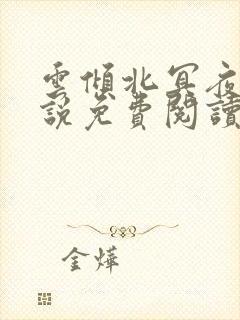 雲傾北冥夜
說免費閱讀
金燁